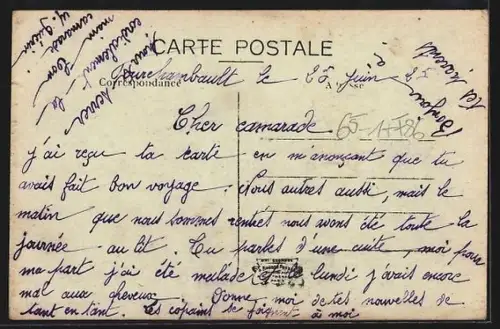 CARTE POSTALE
Correspondance
Fourchambault le 25 juin 25
Cher camarade
65-17786
j'ai reçu ta carte en m'anonçant que tu
avais fait bon voyage. Nous autres aussi, mais le
matin que nous sommes rentrés nous avons été toute la
journée au lit. Tu parles d'une cuite, moi pour
ma part j'ai été malade le lundi j'avais encore
mal aux cheveux. Donne moi de tes nouvelles de
tant en tant. Les copains se joignent à moi
pour serrer
cordialement la
main Ton
camarade
Bonjour à
tes parents